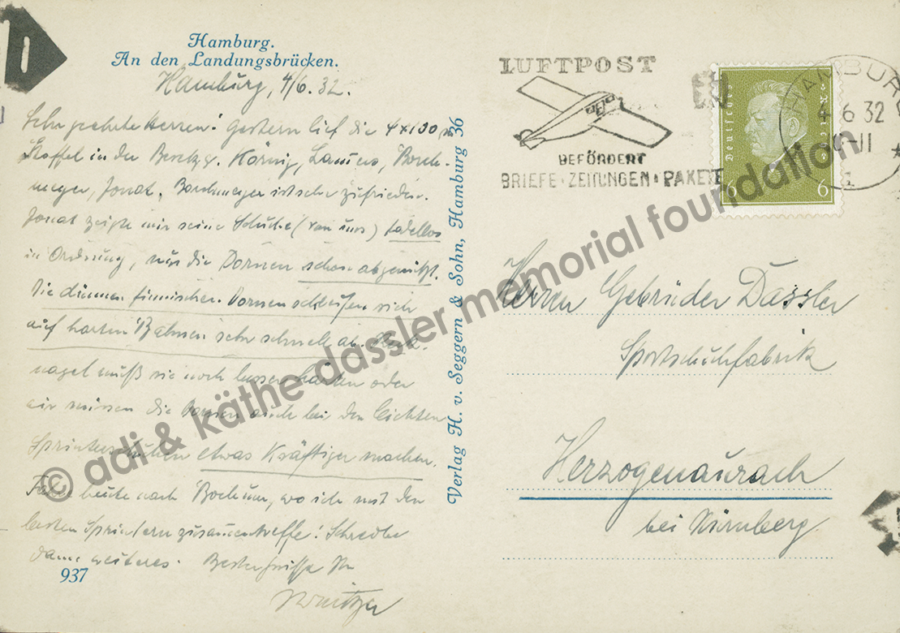 Hamburg.
An den Landungsbrücken.
Hamburg, 4/6. 32.
Sehr geehrte Herren! Gestern lief die 4x100 m
Staffel in der Besetzg. Körnig, Lammers, Borch-
meyer, Jonat. Borchmeyer ist sehr zufrieden.
Jonat zeigte mir seine Schuhe (von uns) tadellos
in Ordnung, nur die Dornen schon abgenützt.
Die dünnen finnischen Dornen schleifen sich
auf harten Bahnen sehr schnell ab.
nagel muß sie noch besser härten oder
wir müssen die Dornen auch bei den leichten
Sprinterschuhen etwas kräftiger machen.
Fahre heute nach Bochum, wo ich mit den
besten Sprintern zusammentreffe! Schreibe
dann weiteres. Beste Grüße Ihr
Waitzer
937
Verlag H. v. Seggern & Sohn, Hamburg 36
LUFTPOST
BEFÖRDERT
BRIEFE · ZEITUNGEN · PAKETE
Deutsches
6 6
HAMBURG
4.6 32
Herrn Gebrüder Dassler
Sportschuhfabrik
Herzogenaurach
bei Nürnberg
© adi & käthe dassler memorial foundation